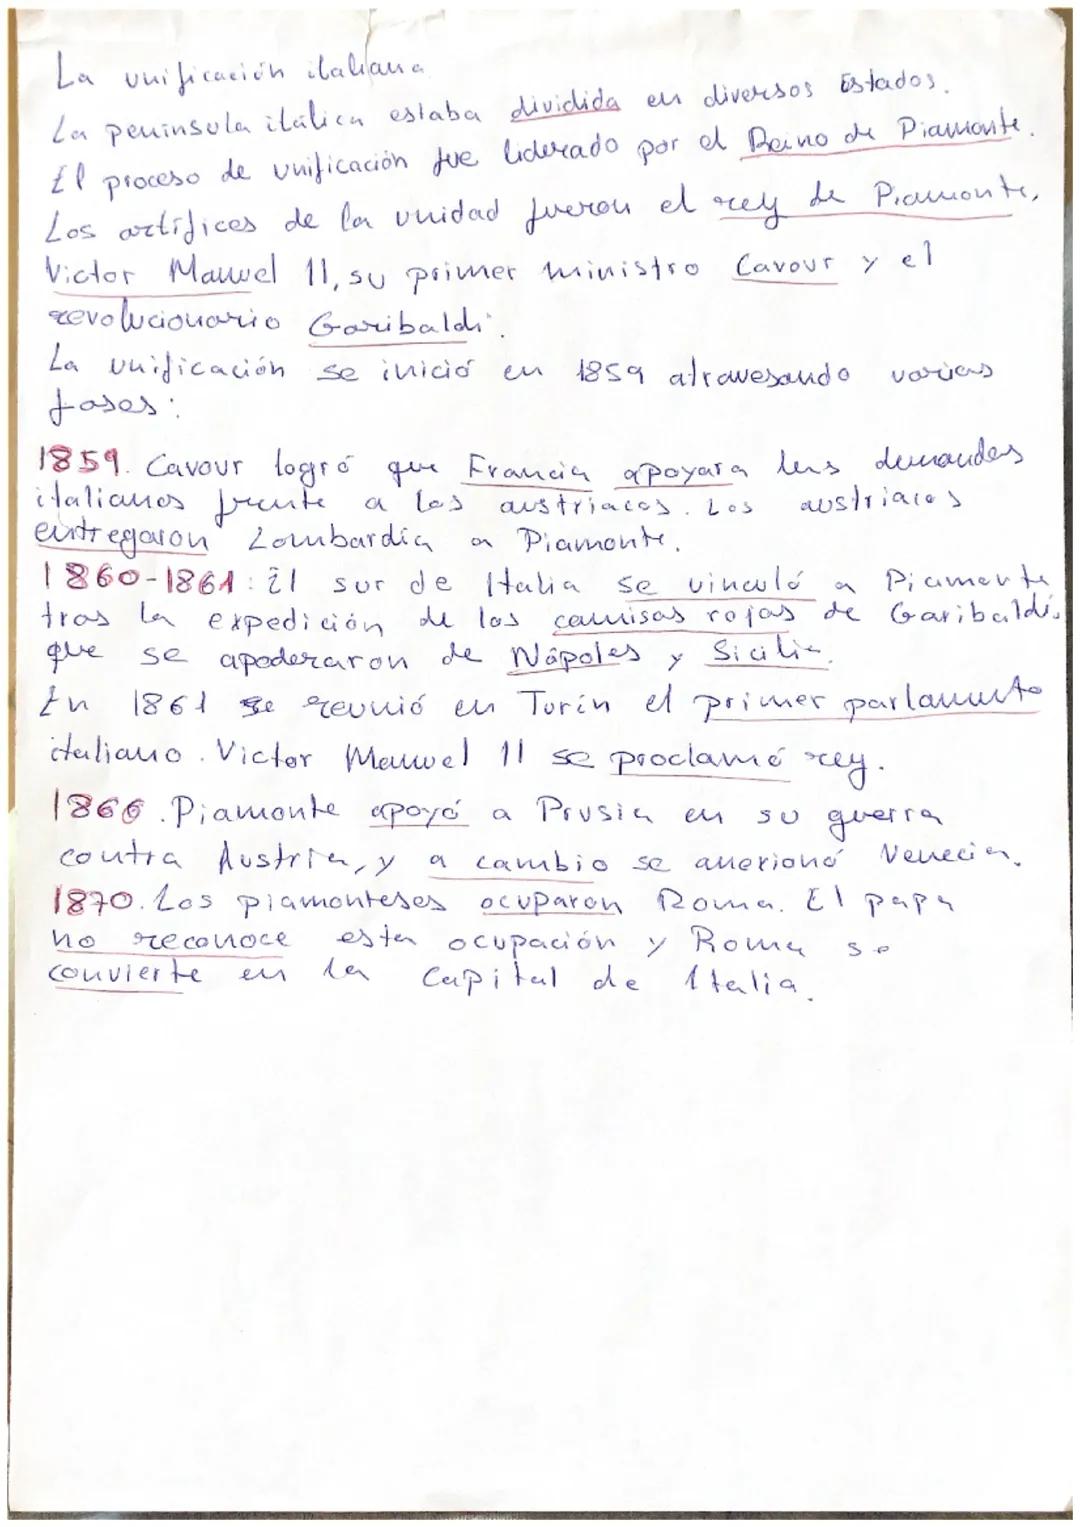 La unificación italiana
La península itálica estaba dividida en diversos Estados.
El proceso de unificación fue liderado por el Reino de Piamonte.
Los artífices de la unidad fueron el rey de Piamonte,
Victor Manuel II, su primer ministro Cavour y el
revolucionario Garibaldi.
La unificación se inició en 1859 atravesando varias
fases:
1859. Cavour logró que Francia apoyara las demandas
italianas frente a los austriacos. Los austriacos
entregaron Lombardía a Piamonte.
1860-1861: El sur de Italia se vinculó a Piamonte
tras la expedición de los camisas rojas de Garibaldi,
que se apoderaron de Nápoles y Sicilia.
En 1861 se reunió en Turín el primer parlamento
italiano. Victor Manuel II se proclamó rey.
1866. Piamonte apoyó a Prusia en su guerra
contra Austria, y a cambio se anexionó Venecia.
1870. Los piamonteses ocuparon Roma. El papa
no reconoce esta ocupación y Roma se
convierte en la capital de Italia.